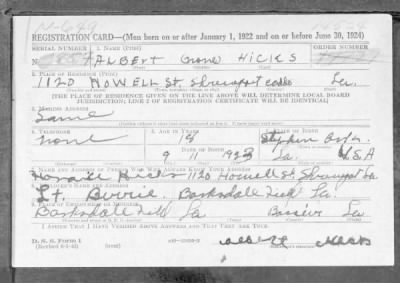 REGISTRATION CARD—(Men born on or after January 1, 1922 and on or before June 30, 1924)
SERIAL NUMBER 1. NAME (Print) ORDER NUMBER
ALBERT (none) HICKS
2. PLACE OF RESIDENCE (Print)
1120 HOWELL St. Shreveport Caddo La.
[THE PLACE OF RESIDENCE GIVEN ON THE LINE ABOVE WILL DETERMINE LOCAL BOARD
JURISDICTION; LINE 2 OF REGISTRATION CERTIFICATE WILL BE IDENTICAL]
3. MAILING ADDRESS
Same
4. TELEPHONE 5. AGE IN YEARS 6. PLACE OF BIRTH
none
9 11 1923 La. U.S.A
7. NAME AND ADDRESS OF PERSON WHO WILL ALWAYS KNOW YOUR ADDRESS
Hicks 1120 Howell St. Shreveport La
8. EMPLOYER'S NAME AND ADDRESS
Lt. Barksdale Field La.
9. PLACE OF EMPLOYMENT OR BUSINESS
Barksdale Field La Bossier La
I AFFIRM THAT I HAVE VERIFIED ABOVE ANSWERS AND THAT THEY ARE TRUE.
D. S. S. Form 1
albert Hicks